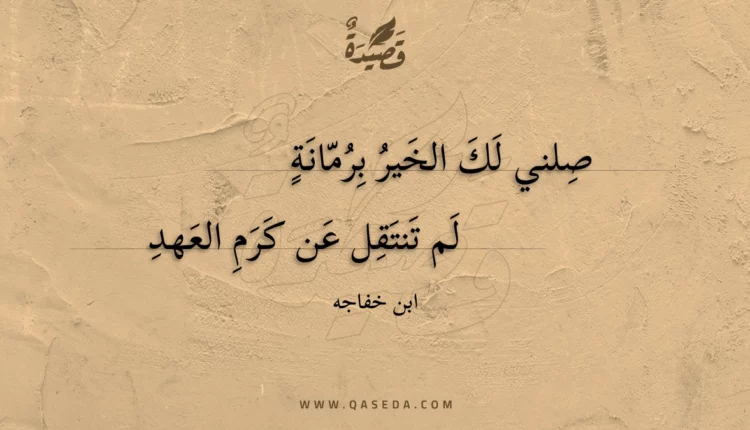 قَصِيْدَةٌ
صِلني لَكَ الخَيرُ بِرُمّانَةٍ
لَم تَنتَقِل عَن كَرَمِ العَهدِ
ابن خفاجه
WWW.QASEDA.COM